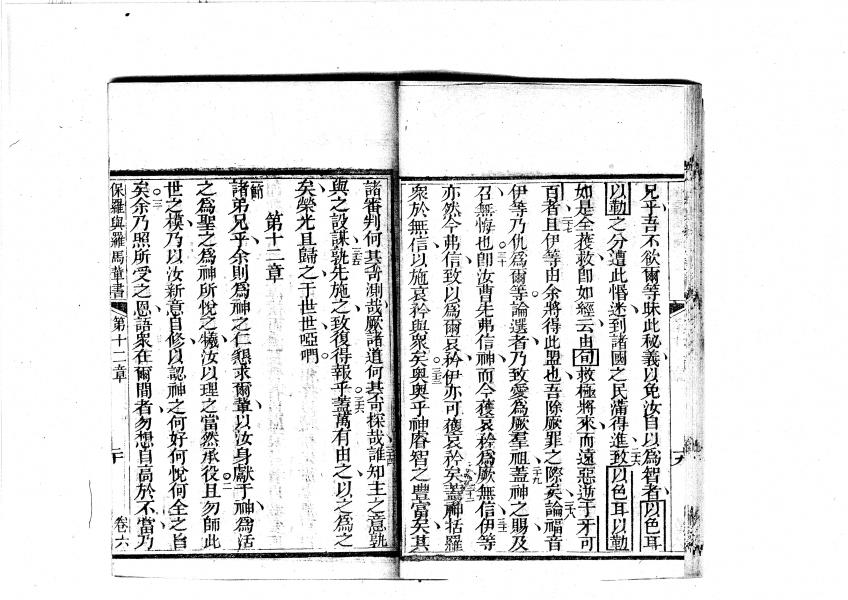 兄乎吾不欲爾等昧此秘義以免汝自以爲智者以色耳
以勒之分遭此惛迷到諸國之民滿得進致以色耳以勒
二六
如是全獲救即如經云由旬救極將來而遠惡逝于牙可
二七
百者且伊等由余將得此盟也吾除厥罪之際矣論福音
二八
伊等乃仇爲爾等論選者乃致愛爲厥羣祖蓋神之賜及
二九
召無悔也即汝曹先弗信神而今獲哀矜爲厥無信伊等
三十
三一
亦然今弗信致以爲爾哀矜伊亦可獲哀矜矣蓋神括羅
三二
衆於無信以施哀矜與衆矣奥奥乎神睿智之豐富矣其
三三
諸審判何其奇測哉厥諸道何其奇探哉誰知主之意孰
三四
與之設謀孰先施之致復得報乎蓋萬有由之以之爲之
三五
三六
矣榮光且歸之于世世啞們
第十二章
節
諸弟兄乎余則爲神之仁懇求爾輩以汝身獻于神爲活
之爲聖之爲神所悅之犧汝以理之當然承役且勿師此
二
世之模乃以汝新意自修以認神之何好何悅何全之旨
矣余乃照所受之恩語衆在爾間者勿想自高於不當乃
三
保羅與羅馬輩書
第十二章
二十
卷六